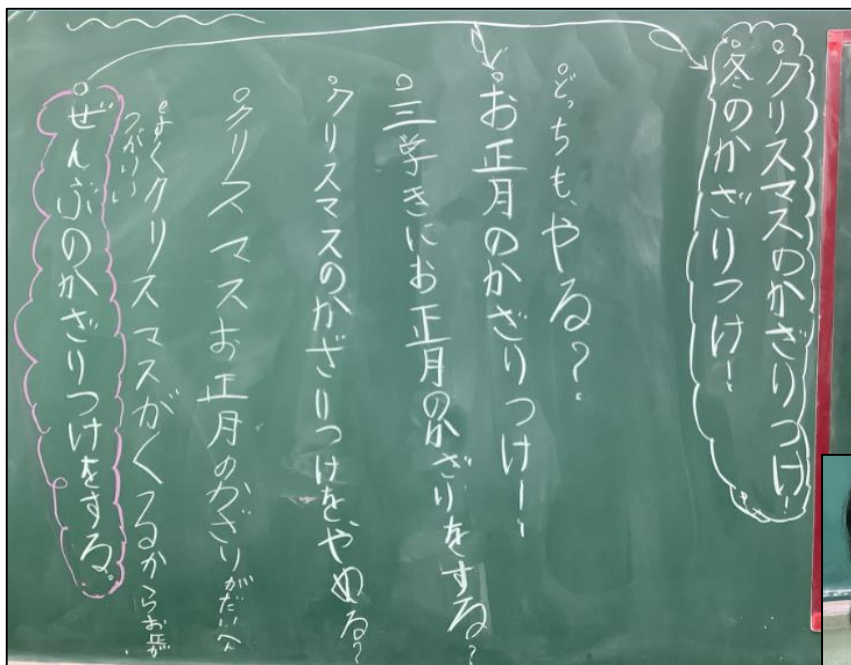 。クリスマスのかざりつけ!
。冬のかざりつけ!
。どっちも、やる?
。お正月のかざりつけ!
。三学きにお正月のかざりをする?
。クリスマスのかざりつけを、やめる?
。クリスマスお正月のかざりがだいへん
クリスマスがくるからお正が
つがりい
。ぜんぶのかざりつけをする。